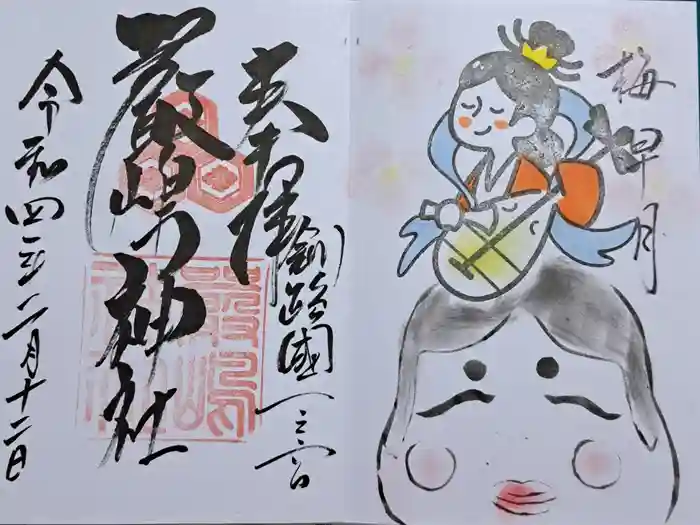 梅早月
奉拝
釧路國一之宮
厳嶋神社
令和四年二月十二日